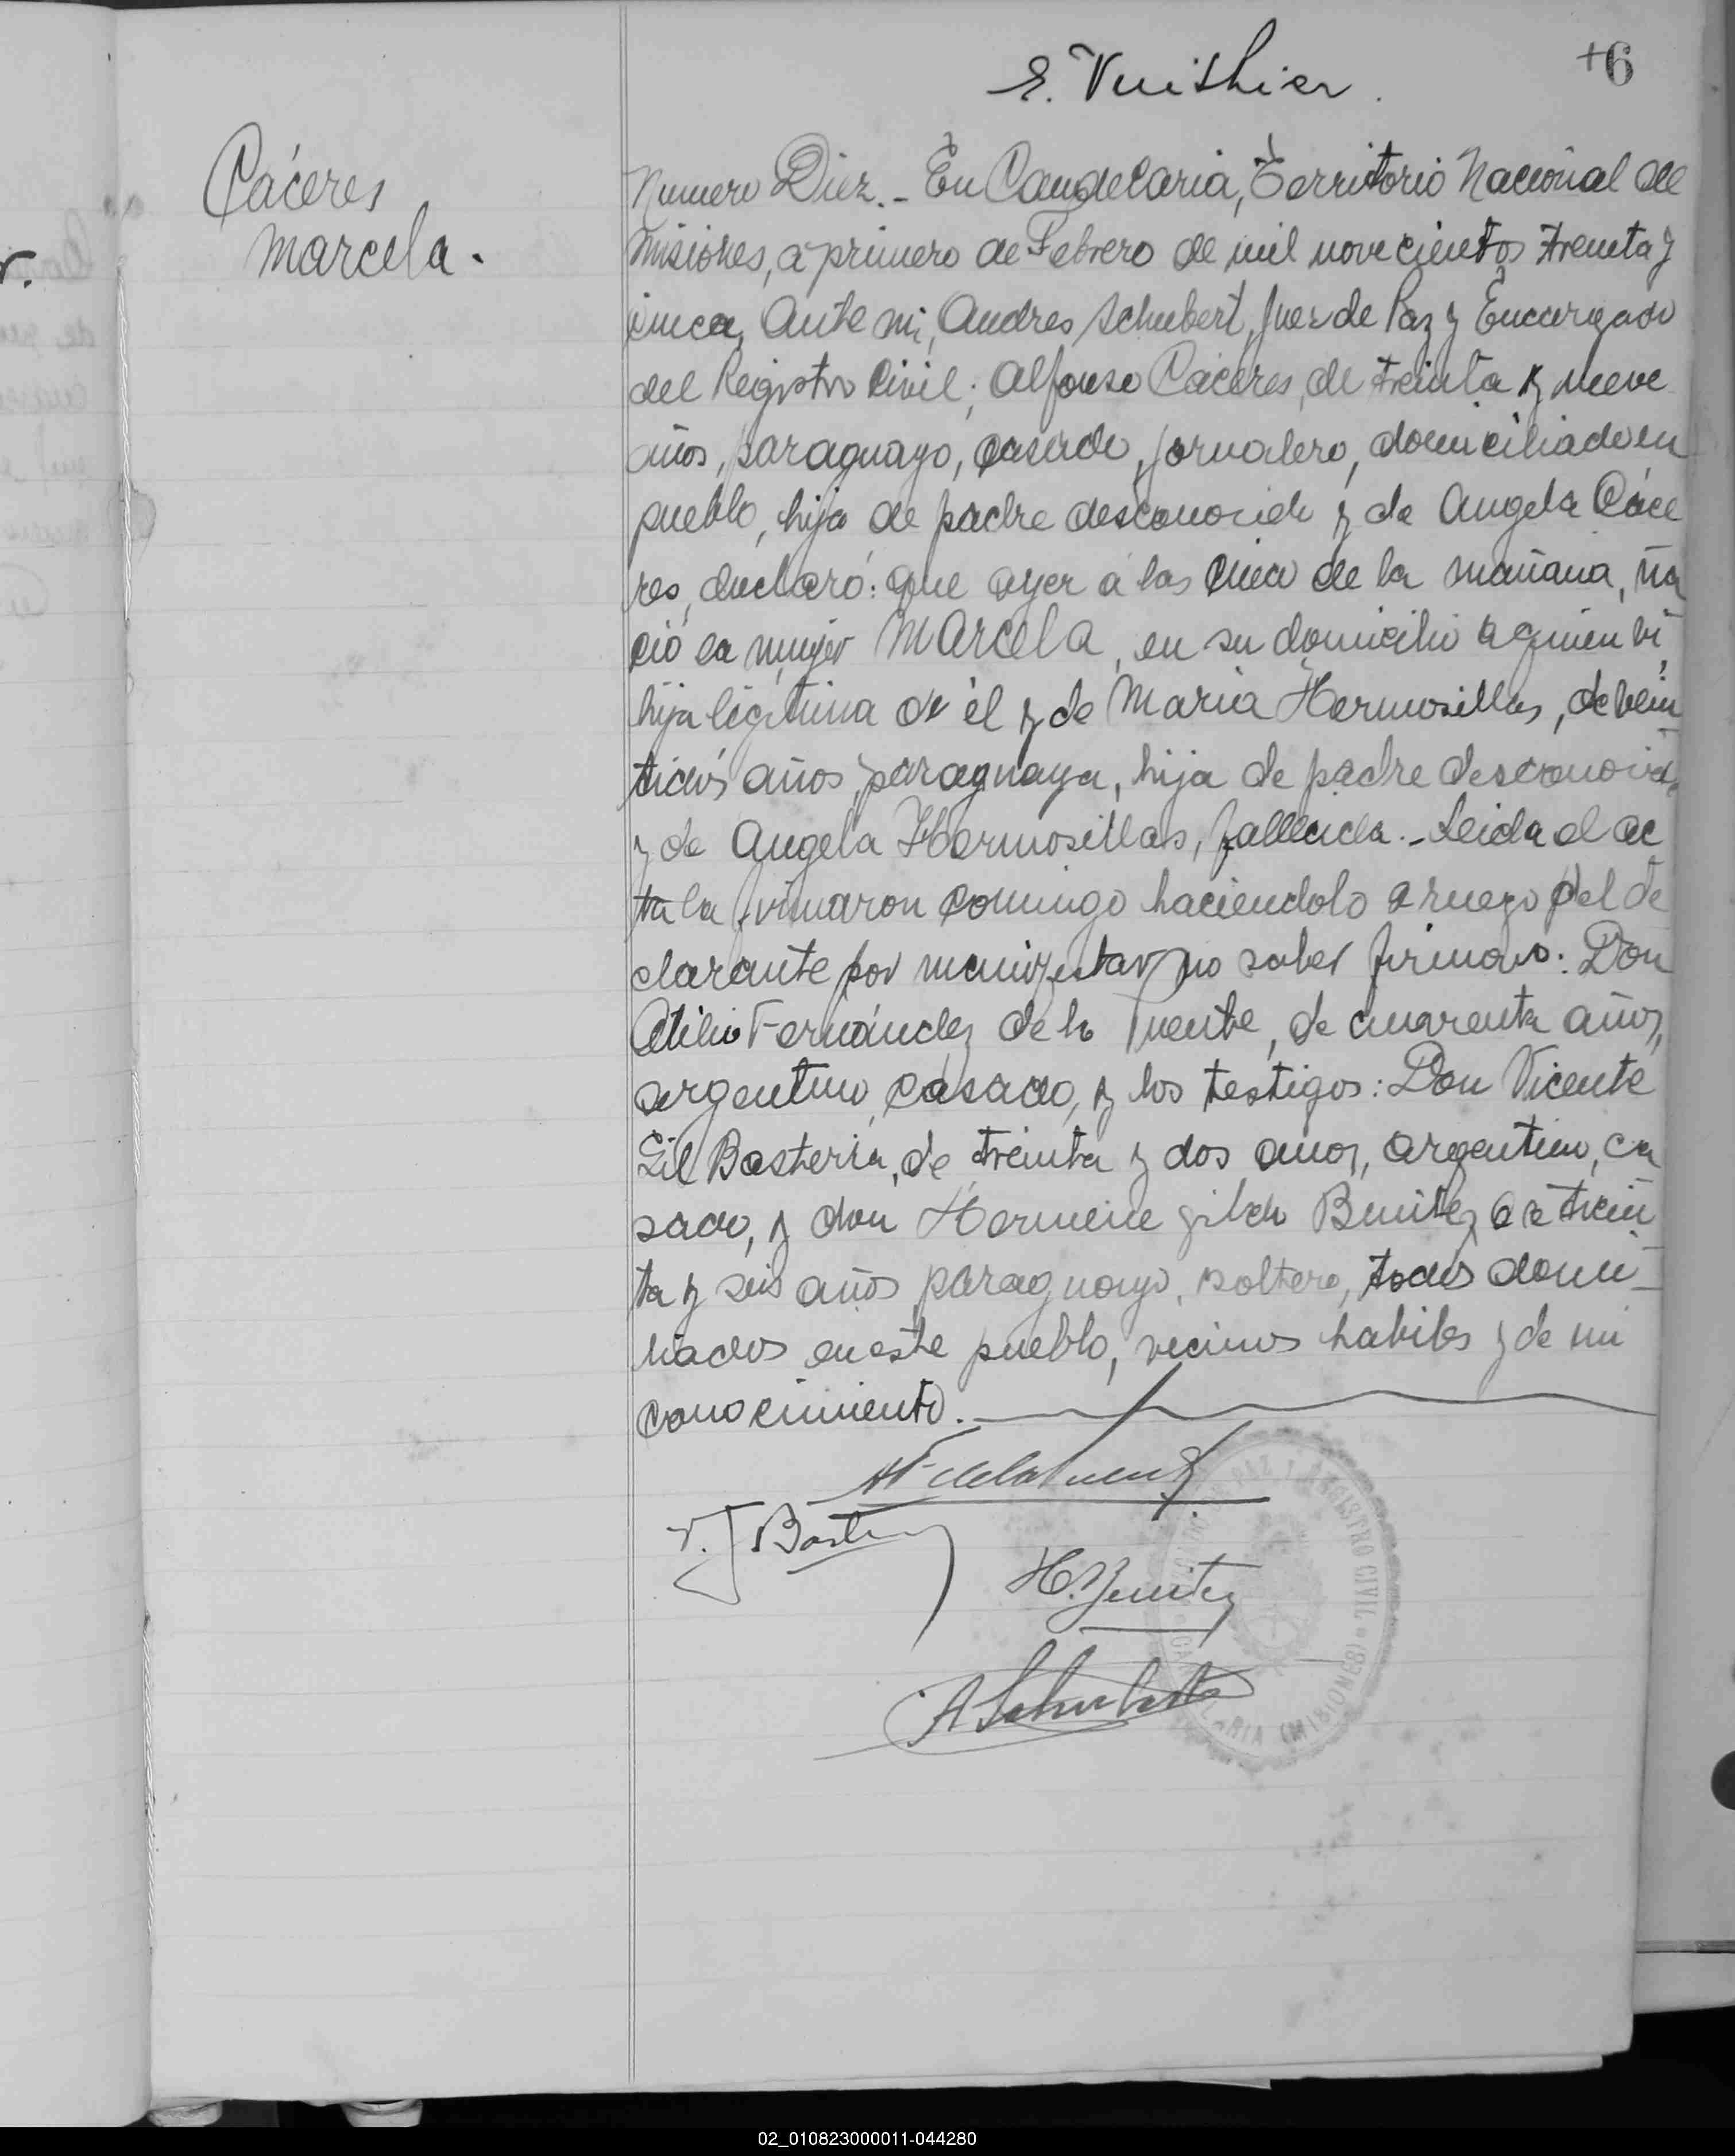 E. Vuithier.
+6
Cáceres
Marcela.
Numero Diez.- En Candelaria, Territorio Nacional de
Misiones, a primero de Febrero de mil novecientos treinta y
cinco, Ante mi, Andres Schubert, Juez de Paz y Encargado
del Registro Civil; Alfonso Cáceres, de treinta y nueve
años, paraguayo, casado, jornalero, domiciliado en
pueblo, hijo de padre desconocido y de Angela Cáce
res, declaró: que ayer a las cinco de la mañana, na
ció la mujer Marcela, en su domicilio a quien vi,
hija legitima de él y de Maria Hermosillas, de vein
tidós años, paraguaya, hija de padre desconocido
y de Angela Hermosillas, fallecida.- Leida el ac
ta la firmaron conmigo haciendolo a ruego del de
clarante por manifestar no saber firmar: Don
Atilio Fernández de la Puente, de cuarenta años,
argentino, casado, y los testigos: Don Vicente
Gil Basterra, de treinta y dos años, argentino, ca
sado, y don Hermenegildo Benitez de trein
ta y seis años paraguayo, soltero, todos domi-
liados en este pueblo, vecinos habiles y de mi
conocimiento.
AF de la Puente
V. J Baster
H. Benitez
A Schubert
PAZ Y REGISTRO CIVIL
CANDELARIA (MISIONES)
02_010823000011-044280